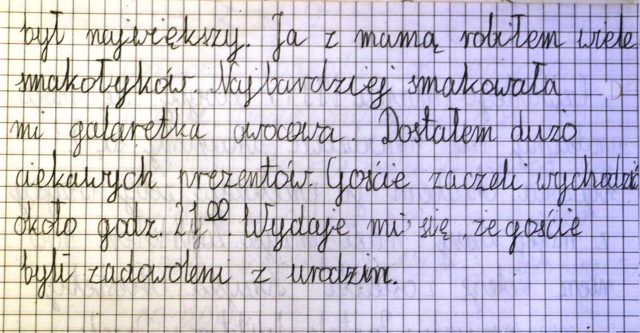 był największy. Ja z mamą robiłem wiele
smakołyków. Najbardziej smakowała
mi galaretka owocowa. Dostałem dużo
ciekawych prezentów. Goście zaczeli wychodzić
około godz. 21⁰⁰. Wydaje mi się, że goście
byli zadowoleni z urodzin.